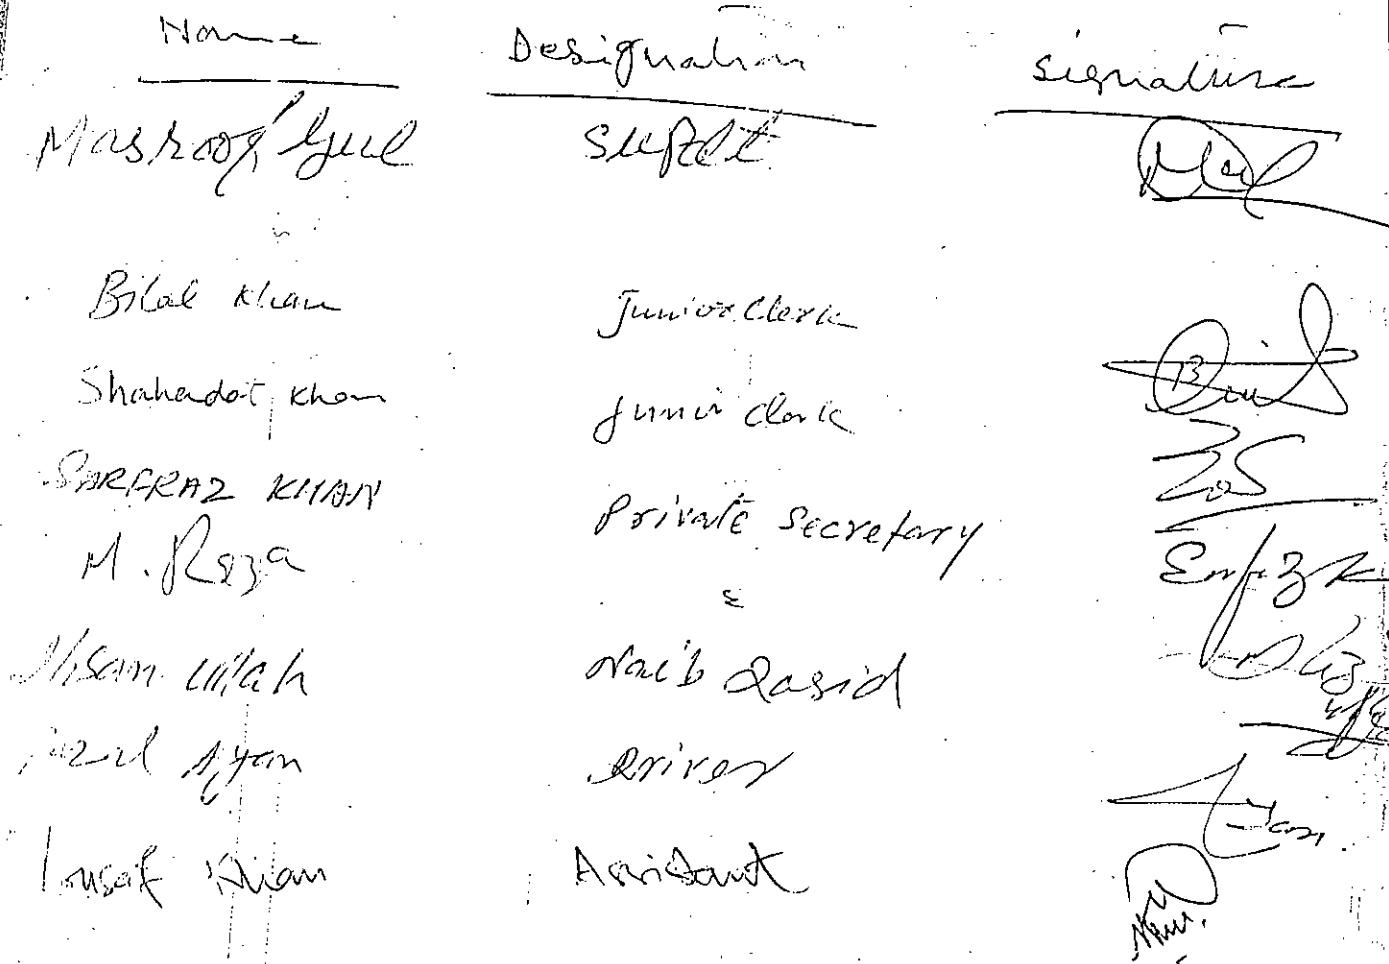 Name Designation Signature
Masroof Gul Supdt
Bilal Khan Junior Clerk
Shahadat Khan Junir Clerk
SARFRAZ KHAN Private Secretary
M. Reza
Ihsan Ullah Naib Qasid
Ayan Driver
Khan Assistant